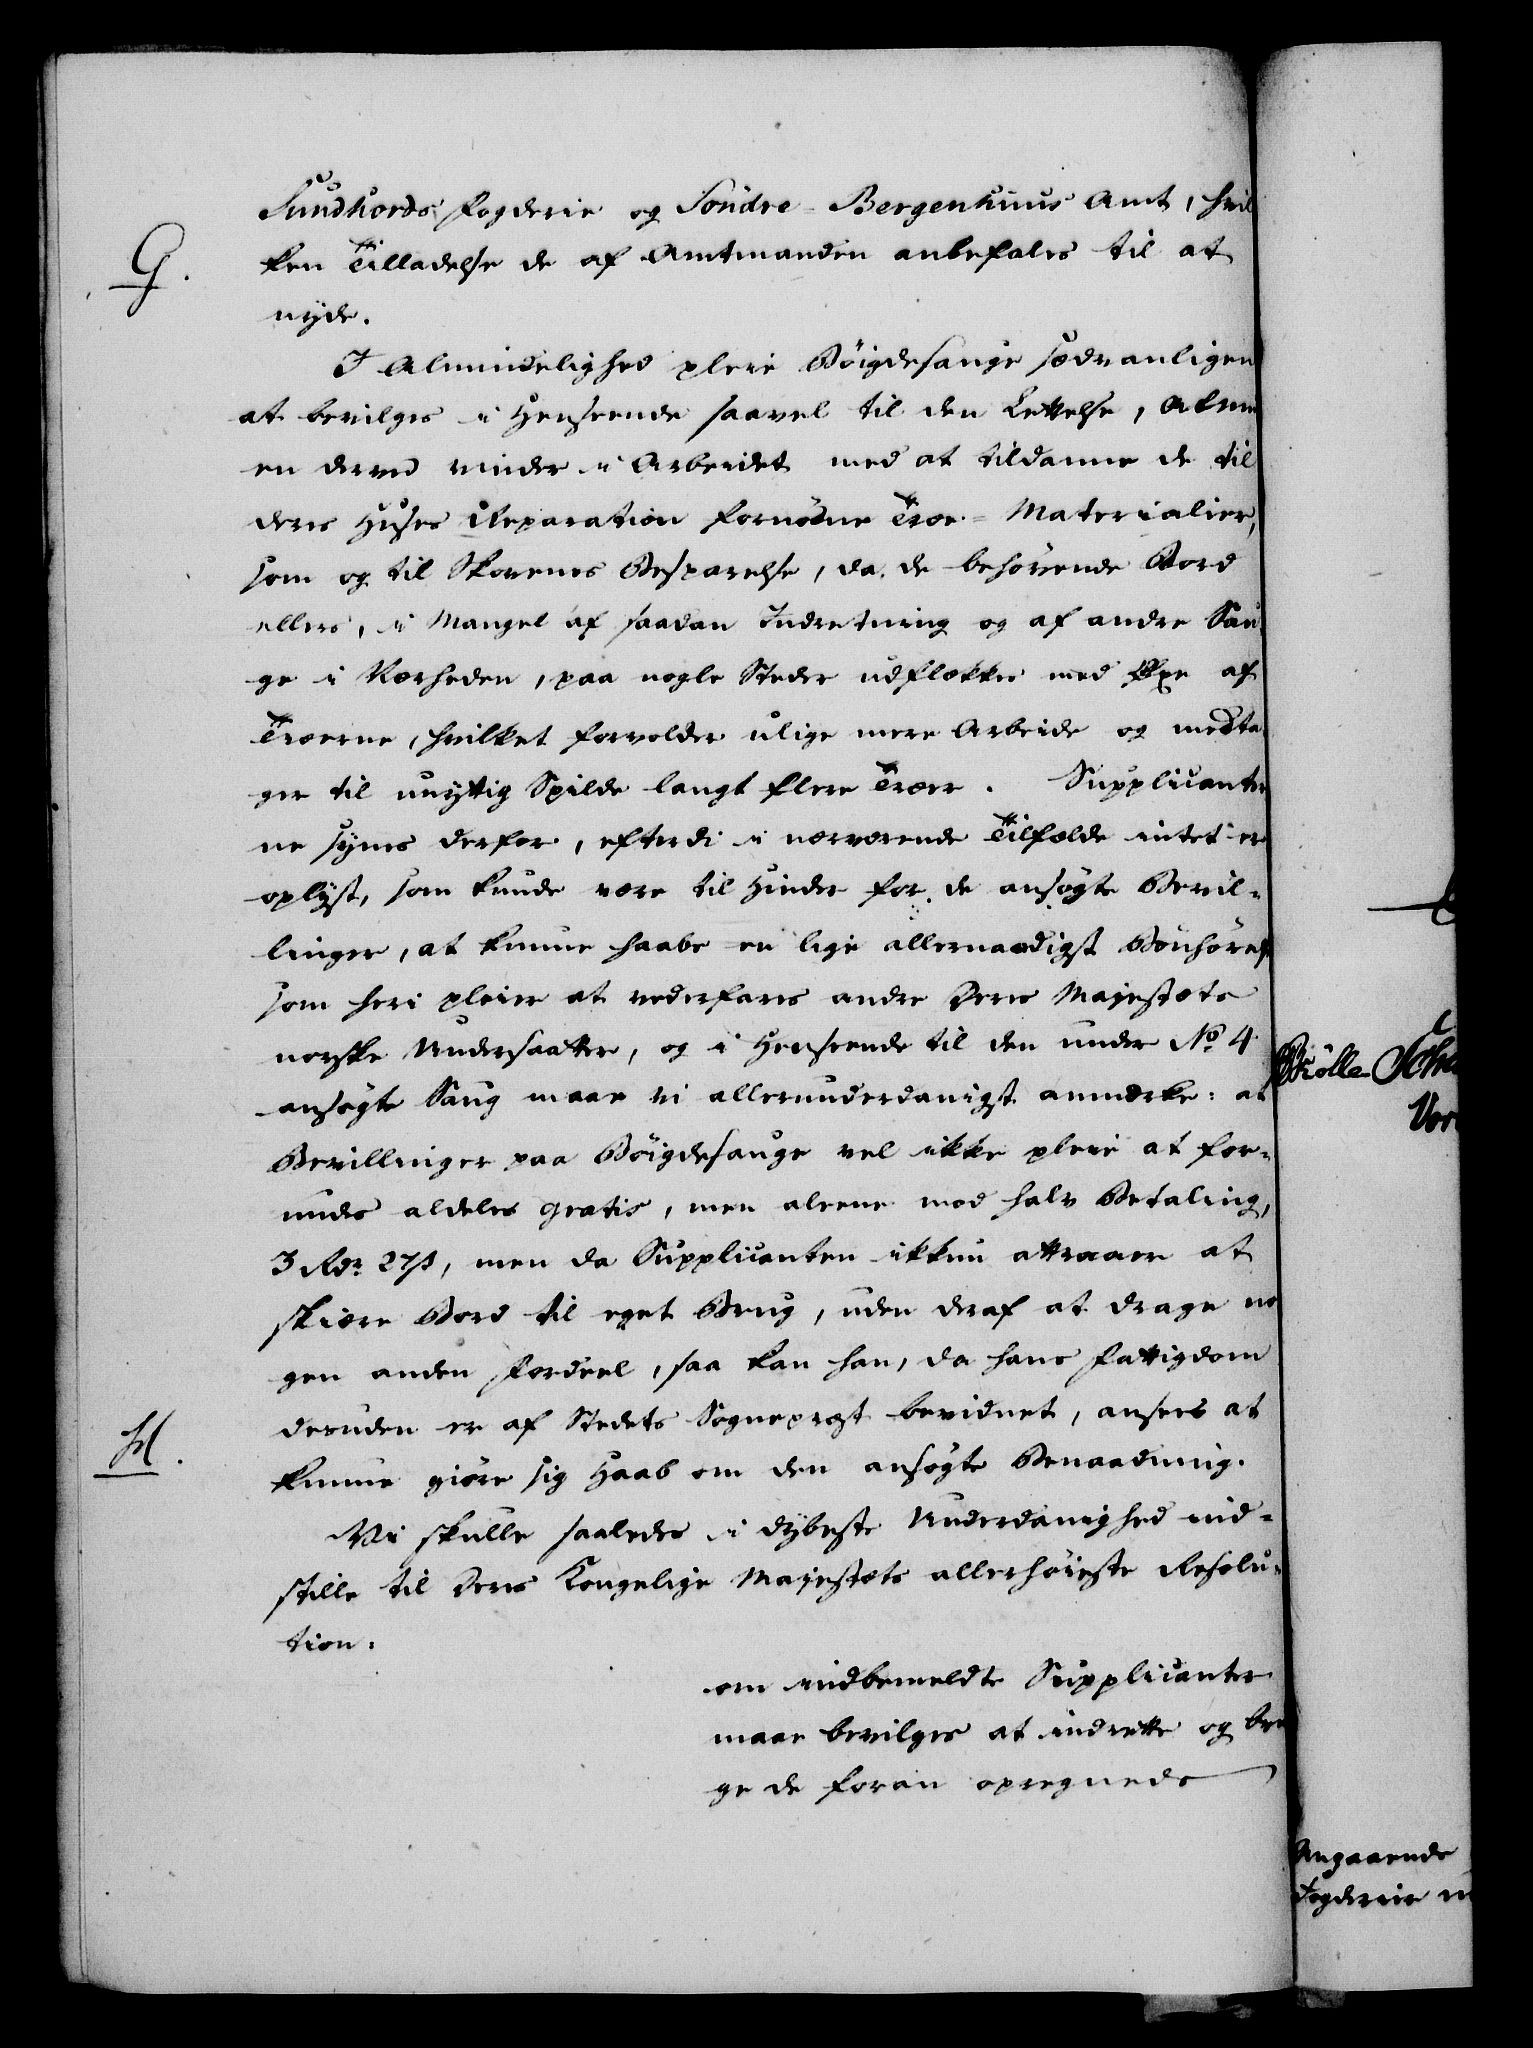 Sundhords Fogderie og Söndre-Bergenhuus Amt, hvil
G.
ken Tilladelse de af Amtmanden anbefales til at
nyde.
I Almindelighed pleie Böigdesauge sædvanligen
at bevilges i Henseende saavel til den Lettelse, Almu
en derved vinder i Arbeidet med at tildanne de til
deres Huses Reparation fornödne Træ-Materialier,
som og til Skovenes Besparelse, da de behövende Bord
ellers, i Mangel af saadan Indretning og af andre Sau
ge i Nærheden, paa nogle Steder udflækkes med Öxe af
Træerne, hvilket forvolder ulige mere Arbeide og medta
ger til unyttig Spilde langt flere Træer. Supplicanter
ne synes derfor, efterdi i nærværende Tilfælde intet er
oplyst, som kunde være til Hinder for de ansøgte Bevil-
linger, at kunne haabe en lige allernaadigst Bönhörelse
som heri pleier at vederfares andre Deres Majestæts
norske Undersaatter, og i Henseende til den under No. 4
ansøgte Saug maae vi allerunderdanigst anmærke: at
Bevillinger paa Böigdesauge vel ikke pleie at for-
undes aldeles gratis, men alene mod halv Betaling,
3 Rdr 27 s, men da Supplicanten ikkun attraaer at
skiære Bord til eget Brug, uden deraf at drage no
gen anden Fordeel, saa kan han, da hans Fattigdom
desuden er af Stedets Sognepræst bevidnet, ansees at
H.
kunne giöre sig Haab om den ansøgte Benaadning.
Vi skulle saaledes i dybeste Underdanighed ind-
stille til Deres Kongelige Majestæts allerhöieste Resolu-
tion:
om indbemeldte Supplicanter
maae bevilges at indrette og bru
ge de foran opregnede
Angaaende
Fogderie